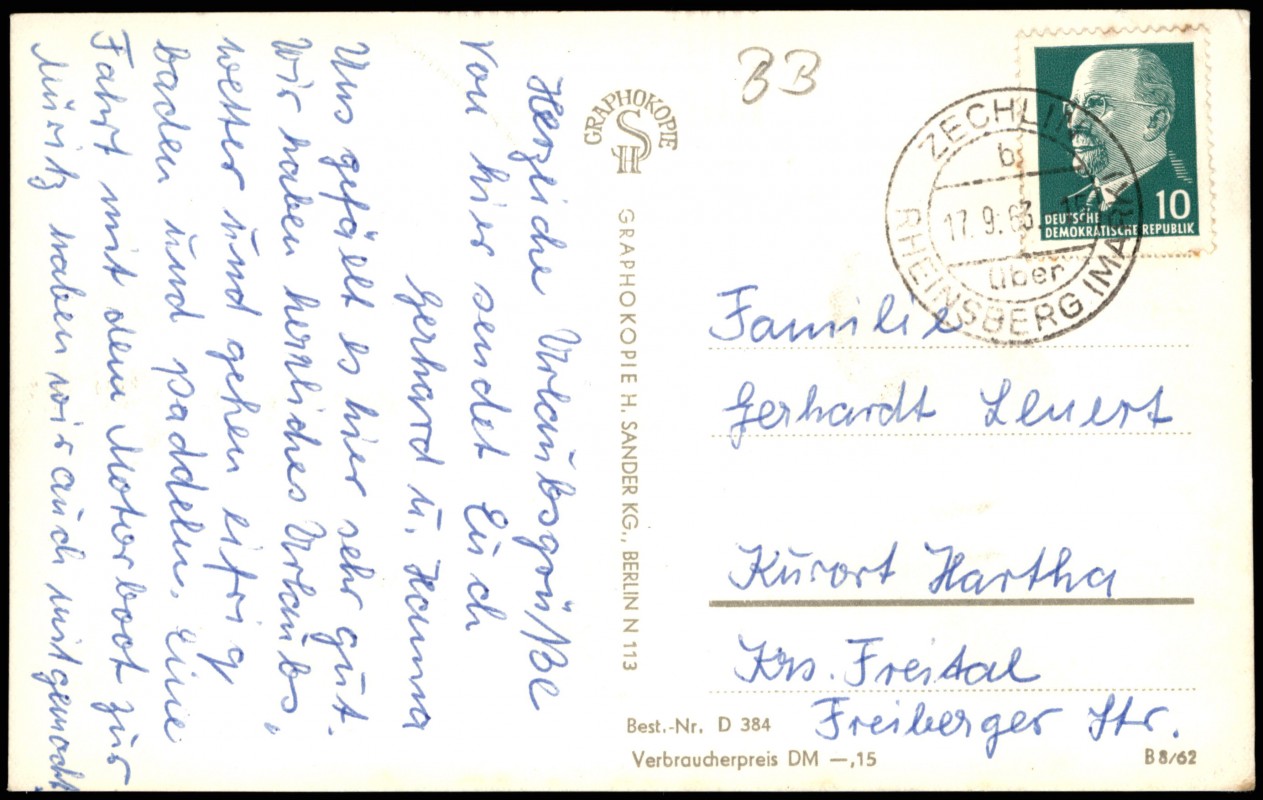 Herzliche Urlaubsgrüße
von hier sendet Euch
Gerhard u. Hanna
Uns gefällt es hier sehr gut.
Wir haben herrliches Urlaubs,
wetter und gehen eifrig
baden und paddeln. Eine
Fahrt mit dem Motorboot zur
Müritz haben wir auch mitgemacht.
GRAPHOKOPIE
SH
GRAPHOKOPIE H. SANDER KG., BERLIN N 113
33
ZECHLIN
b
17.9.63. 15
über
RHEINSBERG (MARK)
10
DEUTSCHE
DEMOKRATISCHE REPUBLIK
Familie
Gerhardt Lenert
Kurort Hartha
Krs. Freital
Freiberger Str.
Best.-Nr. D 384
Verbraucherpreis DM —,15
B 8/62